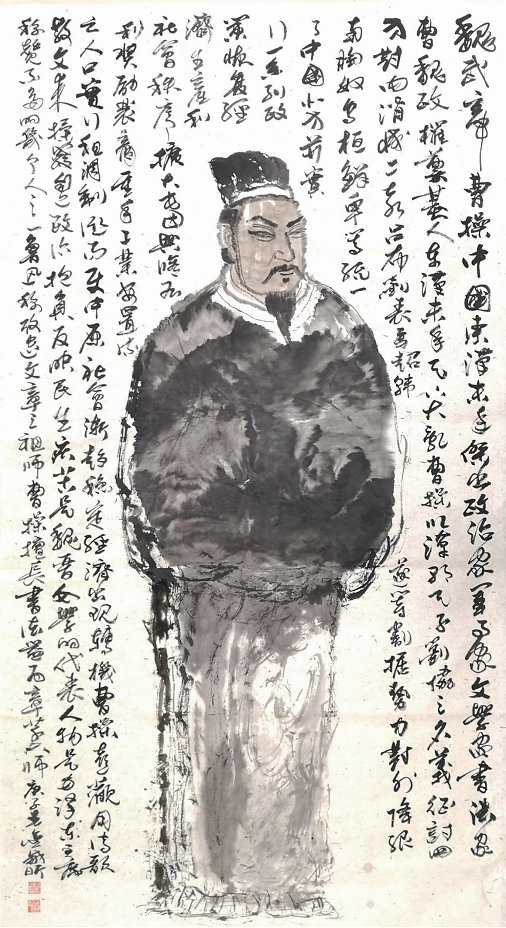 魏武帝曹操中國東漢末年傑出政治家軍事家文學家書法家
曹魏政權奠基人東漢末年天下大亂曹操以漢獻天子劉協之名義征討四
方對內消滅二袁呂布劉表馬超韓遂等割據勢力對外降服
南匈奴烏桓鮮卑等統一
了中國北方並實
行一系列政
策恢復經
濟生產和
社會秩序擴大屯田興修水
利獎勵農桑重手工業安置流
亡人口實行租調制從而使中原社會漸趨穩定經濟出現轉機曹操喜歡用詩歌
散文來抒發自己政治抱負反映民生疾苦是魏晉文學的代表人物是毛澤東主席
稱贊不多的幾個人之一魯迅稱改造文章之祖師曹操擅長書法章草大師庚子